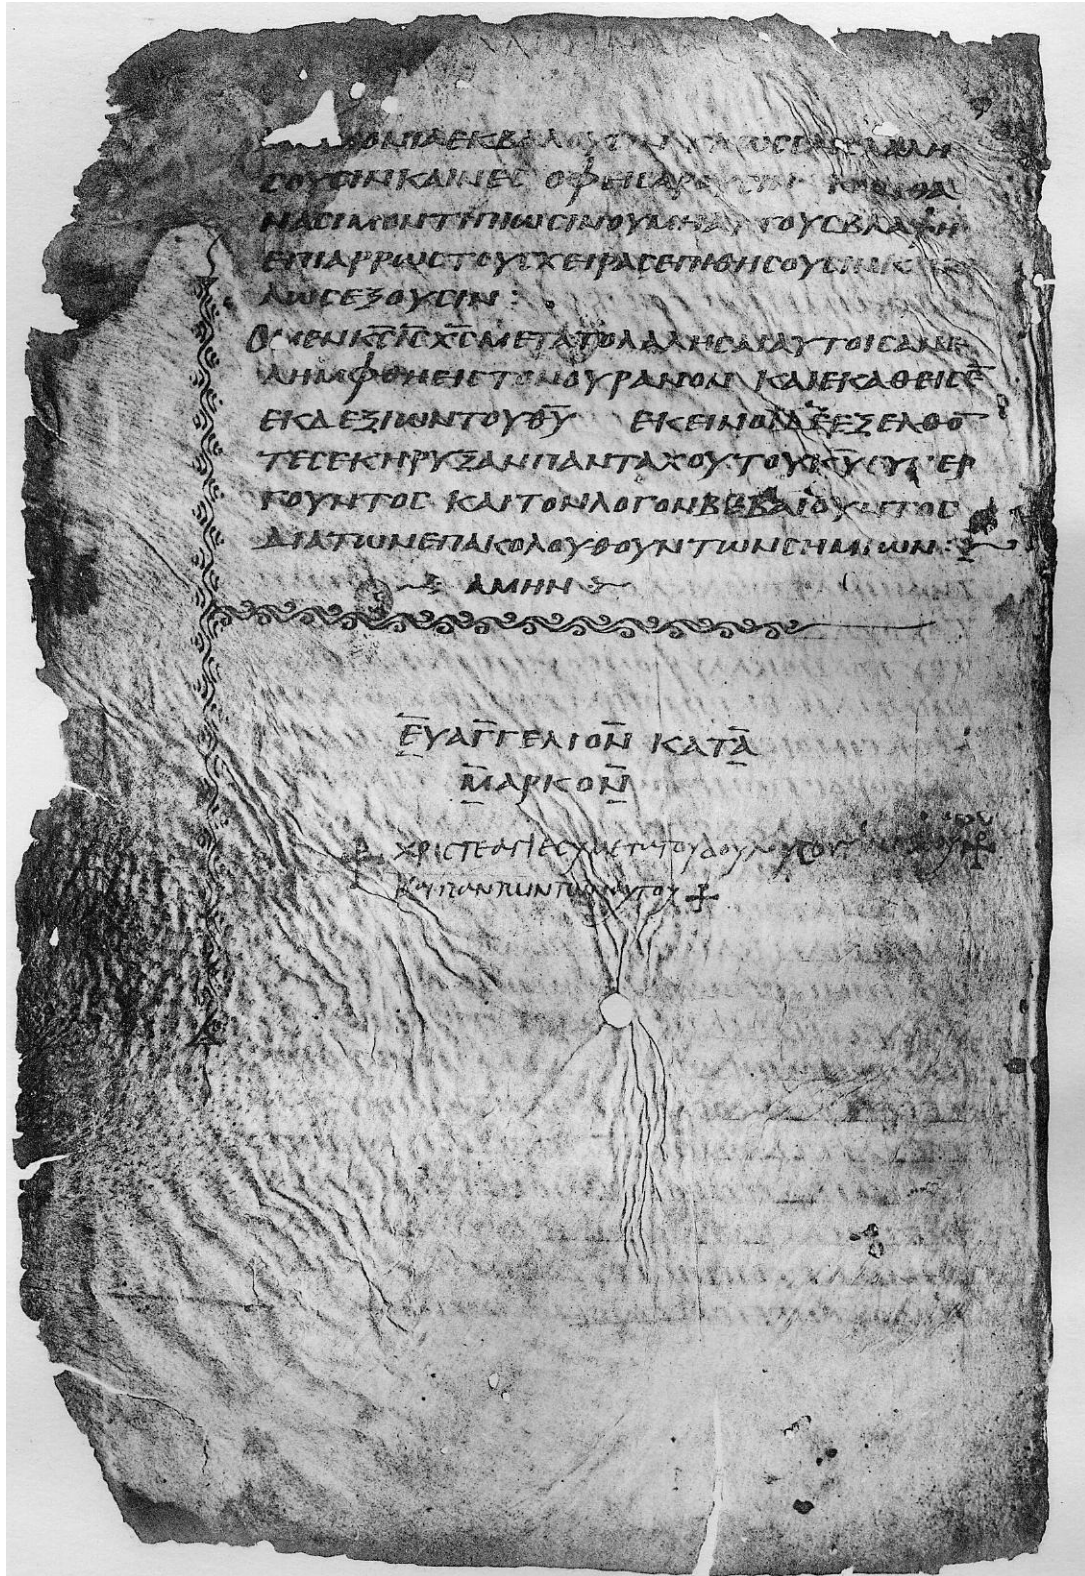 ΕΚΒΑΛΟΥΣΙΝ
ΣΟΥΣΙΝ ΚΑΙΝΕΣ ΟΦΕΙΣ ΑΡΟΥΣΙΝ
ΝΑΣΙΜΟΝ ΤΗ ΠΙΩΣΙΝ ΟΥ ΜΗ ΑΥΤΟΥΣ ΒΛΑΨΗ
ΕΠΙ ΑΡΡΩΣΤΟΥΣ ΧΕΙΡΑΣ ΕΠΙΘΗΣΟΥΣΙΝ
ΛΩΣ ΕΞΟΥΣΙΝ :
Ο ΜΕΝ Κ̅Σ̅ Ι̅Σ̅ Χ̅Σ̅ ΜΕΤΑ ΤΟ ΛΑΛΗΣΑΙ ΑΥΤΟΙΣ ΑΝΕ
ΛΗΜΦΘΗ ΕΙΣ ΤΟΝ ΟΥΡΑΝΟΝ ΚΑΙ ΕΚΑΘΕΙΣΕ̅
ΕΚ ΔΕΞΙΩΝ ΤΟΥ Θ̅Υ̅ ΕΚΕΙΝΟΙ ΔΕ ΕΞΕΛΘΟ̅
ΤΕΣ ΕΚΗΡΥΞΑΝ ΠΑΝΤΑΧΟΥ ΤΟΥ Κ̅Υ̅ ΣΥΝΕΡ
ΓΟΥΝΤΟΣ ΚΑΙ ΤΟΝ ΛΟΓΟΝ ΒΕΒΑΙΟΥΝΤΟΣ
ΔΙΑ ΤΩΝ ΕΠΑΚΟΛΟΥΘΟΥΝΤΩΝ ΣΗΜΙΩΝ :
ΑΜΗΝ
ΕΥΑΓΓΕΛΙΟΝ ΚΑΤΑ
ΜΑΡΚΟΝ
ΧΡΙΣΤΕ ΑΓΙΕ ΣΥ ΜΕΤΑ ΤΟΥ ΔΟΥΛΟΥ ΣΟΥ
ΚΑΙ ΠΑΝΤΩΝ ΤΩΝ ΑΥΤΟΥ